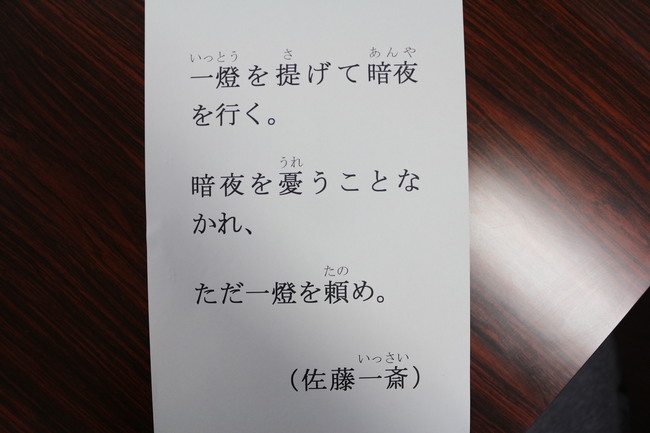 いっとう さ あんや
一燈を提げて暗夜
を行く。
うれ
暗夜を憂うことな
かれ、
たの
ただ一燈を頼め。
いっさい
（佐藤一斎）